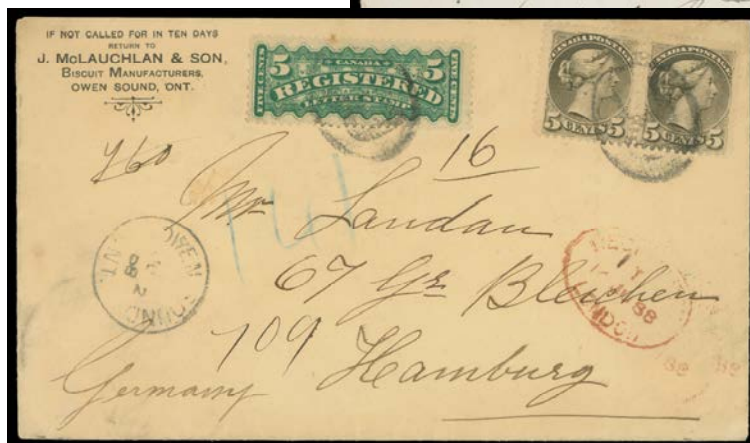 IF NOT CALLED FOR IN TEN DAYS
RETURN TO
J. McLAUCHLAN & SON,
BISCUIT MANUFACTURERS,
OWEN SOUND, ONT.
CANADA
5 REGISTERED 5
LETTER STAMP
FIVE CENTS
SIX CENTS
CANADA POSTAGE
5 CENTS 5
CANADA POSTAGE
5 CENTS 5
16
Mr Landau
67 Gr Bleichen
109 Hamburg
Germany
OWEN SOUND
ONT.
2
88
LONDON
88